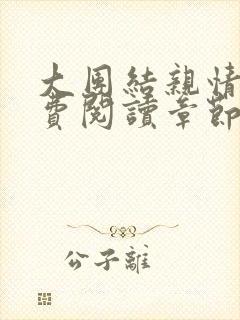 大團結親情
費閱讀章節
公子離